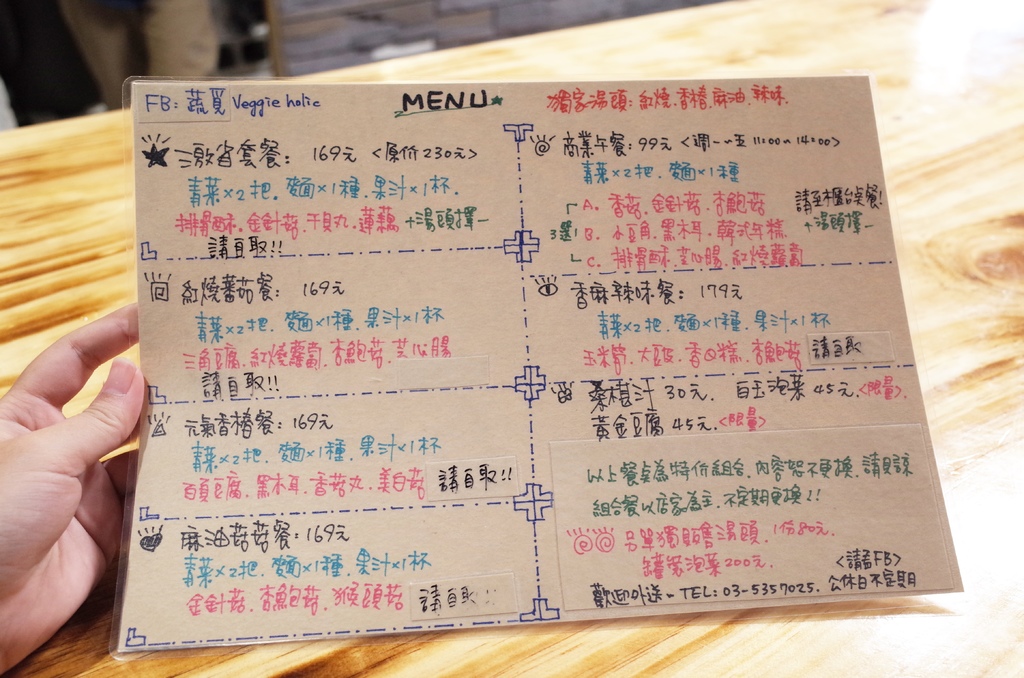 FB: 蔬覓 Veggie holic
MENU
獨家湯頭: 紅燒.香椿.麻油.辣味.
激省套餐: 169元 <原价230元>
青菜×2把. 麵×1種. 果汁×1杯.
排骨酥. 金針菇. 干貝丸. 蓮藕 +湯頭擇一
請自取!!
紅燒蕃茄餐: 169元
青菜×2把. 麵×1種. 果汁×1杯
三角豆腐. 紅燒蘿蔔. 杏鮑菇. 芝心腸
請自取!!
元氣香椿餐: 169元
青菜×2把. 麵×1種. 果汁×1杯
百頁豆腐. 黑木耳. 香菇丸. 美白菇
請自取!!
麻油菇菇餐: 169元
青菜×2把. 麵×1種. 果汁×1杯
金針菇. 杏鮑菇. 猴頭菇
請自取!!
商業午餐: 99元 <週一~五 11:00~14:00>
青菜×2把. 麵×1種
請至櫃台点餐!
+湯頭擇一
3選1
A. 香菇. 金針菇. 杏鮑菇
B. 小豆角. 黑木耳. 韓式年糕
C. 排骨酥. 芝心腸. 紅燒蘿蔔
香麻辣味餐: 179元
青菜×2把. 麵×1種. 果汁×1杯
玉米筍. 大豆皮. 香Q糕. 杏鮑菇
請自取
桑椹汁 30元. 白玉泡菜 45元.<限量>.
黃金豆腐 45元.<限量>
以上餐桌為特价組合. 內容恕不更換. 請見諒
組合餐以店家為主. 不定期更換!!
另單獨販售湯頭. 1份80元.
罐裝泡菜200元.
<請看FB>
歡迎外送~TEL: 03-5357025. 公休日不定期